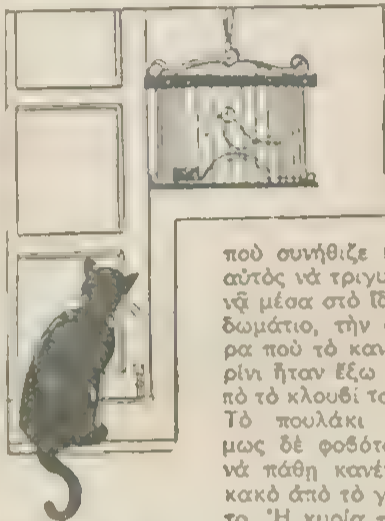 ποὺ συνήθιζε
αὐτὸς νὰ τριγυ
νᾷ μέσα στὸ ἴδ
δωμάτιο, τὴν
ρα ποὺ τὸ κανα
ρίνι ἦταν ἔξω
πὸ τὸ κλουβί το
Τὸ πουλάκι
μως δὲ φοβότα
νὰ πάθῃ κανέν
κακὸ ἀπὸ τὸ γ
το. Ἡ κυρία